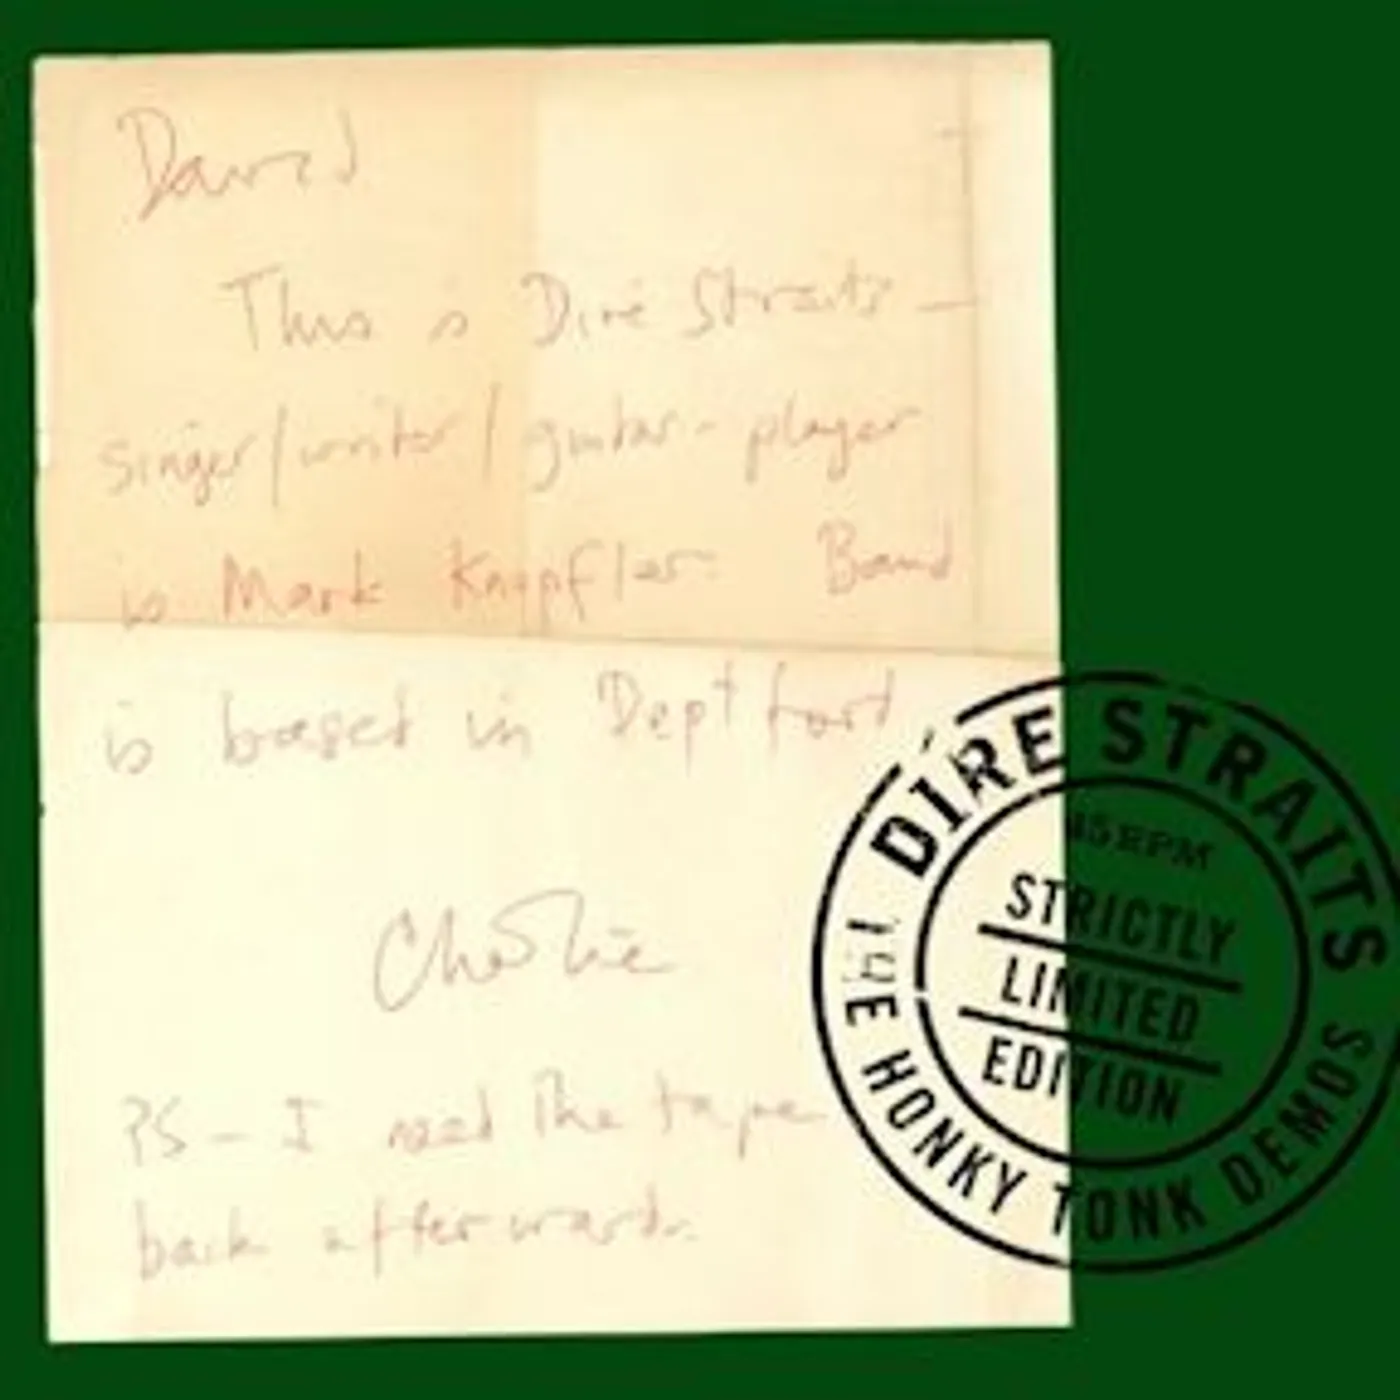 David
This is Dire Straits -
singer/writer/guitar-player
is Mark Knopfler. Band
is based in Deptford
Charlie
PS - I need the tape
back afterwards.
DIRE STRAITS
45 RPM
STRICTLY
LIMITED
EDITION
THE HONKY TONK DEMOS